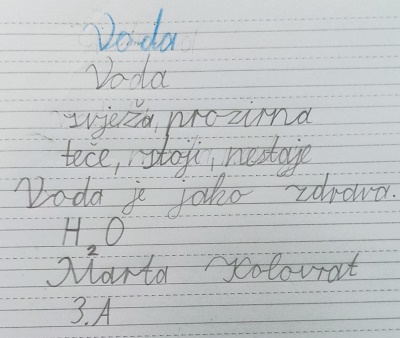 Voda
Voda
svježa, prozirna
teče, stoji, nestaje
Voda je jako zdrava.
H2O
Marta Kolovrat
3.A